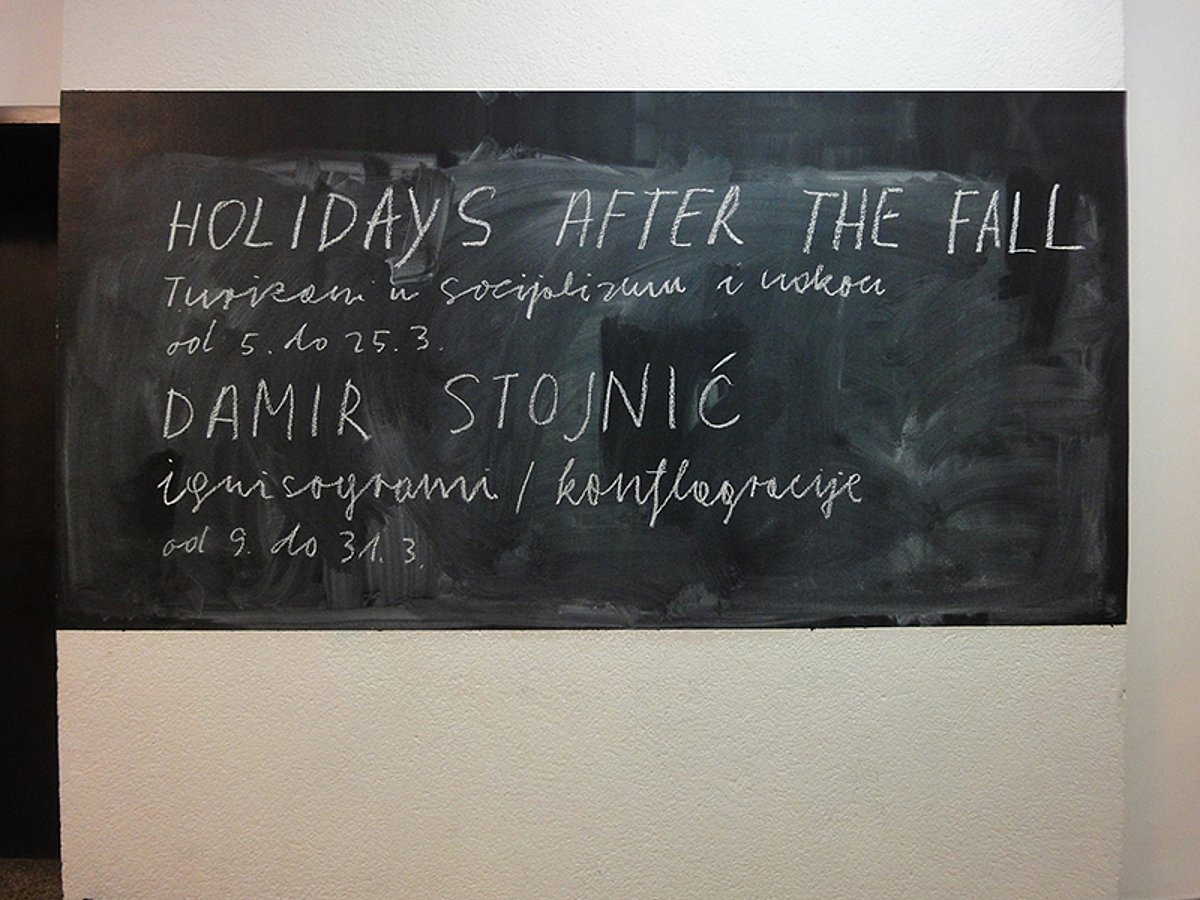 HOLIDAYS AFTER THE FALL
Turizam u socijalizmu i nakon
od 5. do 25. 3.
DAMIR STOJNIĆ
ignisogrami / konflagracije
od 9. do 31. 3.